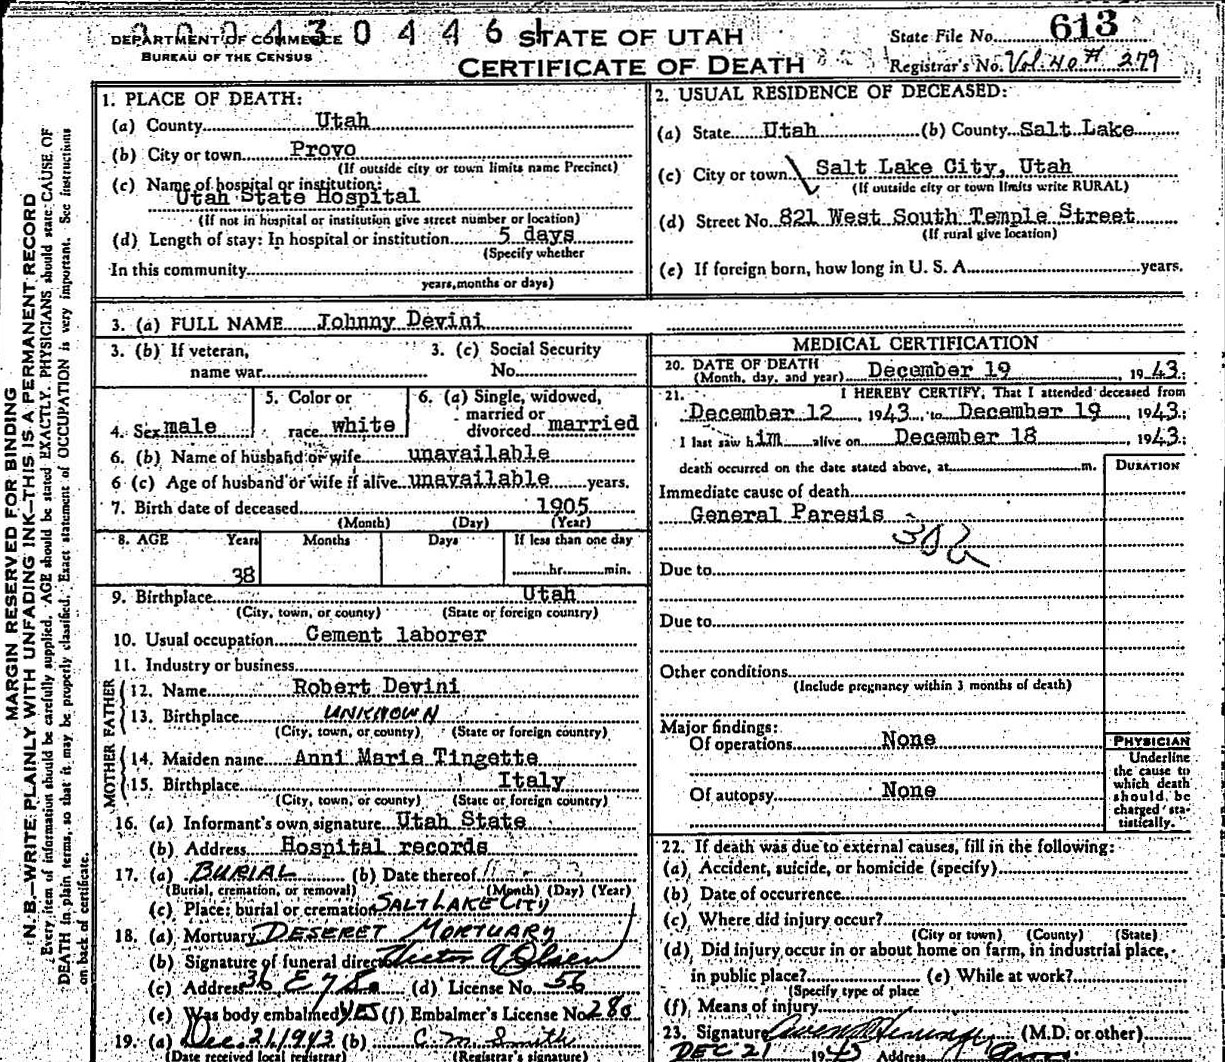 0 0 0 4 3 0 4 4 6 1
DEPARTMENT OF COMMERCE
BUREAU OF THE CENSUS
STATE OF UTAH
CERTIFICATE OF DEATH
State File No. 613
Registrar's No. Vol. 40 # 279
MARGIN RESERVED FOR BINDING
N. B.—WRITE PLAINLY WITH UNFADING INK—THIS IS A PERMANENT RECORD
Every item of information should be carefully supplied. AGE should be stated EXACTLY. PHYSICIANS should state CAUSE OF
DEATH in plain terms, so that it may be properly classified. Exact statement of OCCUPATION is very important. See instructions
on back of certificate.
1. PLACE OF DEATH:
(a) County Utah
(b) City or town Provo
(If outside city or town limits name Precinct)
(c) Name of hospital or institution:
Utah State Hospital
(If not in hospital or institution give street number or location)
(d) Length of stay: In hospital or institution 5 days
(Specify whether
In this community
years, months or days)
2. USUAL RESIDENCE OF DECEASED:
(a) State Utah (b) County Salt Lake
(c) City or town Salt Lake City, Utah
(If outside city or town limits write RURAL)
(d) Street No. 821 West South Temple Street
(If rural give location)
(e) If foreign born, how long in U. S. A. years.
3. (a) FULL NAME Johnny Devini
3. (b) If veteran, 3. (c) Social Security
name war No.
4. Sex male 5. Color or race white 6. (a) Single, widowed, married or divorced married
6. (b) Name of husband or wife unavailable
6 (c) Age of husband or wife if alive unavailable years.
7. Birth date of deceased 1905
(Month) (Day) (Year)
8. AGE Years Months Days If less than one day
38 hr. min.
9. Birthplace Utah
(City, town, or county) (State or foreign country)
10. Usual occupation Cement laborer
11. Industry or business
FATHER
12. Name Robert Devini
13. Birthplace UNKNOWN
(City, town, or county) (State or foreign country)
MOTHER
14. Maiden name Anni Maria Tingette
15. Birthplace Italy
(City, town, or county) (State or foreign country)
16. (a) Informant's own signature Utah State
(b) Address Hospital records
17. (a) BURIAL (b) Date thereof
(Burial, cremation, or removal) (Month) (Day) (Year)
(c) Place: burial or cremation SALT LAKE CITY
18. (a) Mortuary DESERET MORTUARY
(b) Signature of funeral director Victor A Olsen
(c) Address 36 E 7 So (d) License No. 56
(e) Was body embalmed YES (f) Embalmer's License No. 280
19. (a) Dec. 21 1943 (b) C. M. Smith
(Date received local registrar) (Registrar's signature)
MEDICAL CERTIFICATION
20. DATE OF DEATH
(Month, day, and year) December 19, 1943;
21. I HEREBY CERTIFY, That I attended deceased from
December 12, 1943, to December 19, 1943;
I last saw him alive on December 18, 1943;
death occurred on the date stated above, at m.
DURATION
Immediate cause of death
General Paresis
30 b
Due to
Due to
Other conditions
(Include pregnancy within 3 months of death)
Major findings:
Of operations None
Of autopsy None
PHYSICIAN
Underline
the cause to
which death
should be
charged sta-
tistically.
22. If death was due to external causes, fill in the following:
(a) Accident, suicide, or homicide (specify)
(b) Date of occurrence
(c) Where did injury occur?
(City or town) (County) (State)
(d) Did injury occur in or about home on farm, in industrial place,
in public place? (e) While at work?
(Specify type of place
(f) Means of injury
23. Signature (M.D. or other)
DEC 21 1943 Address